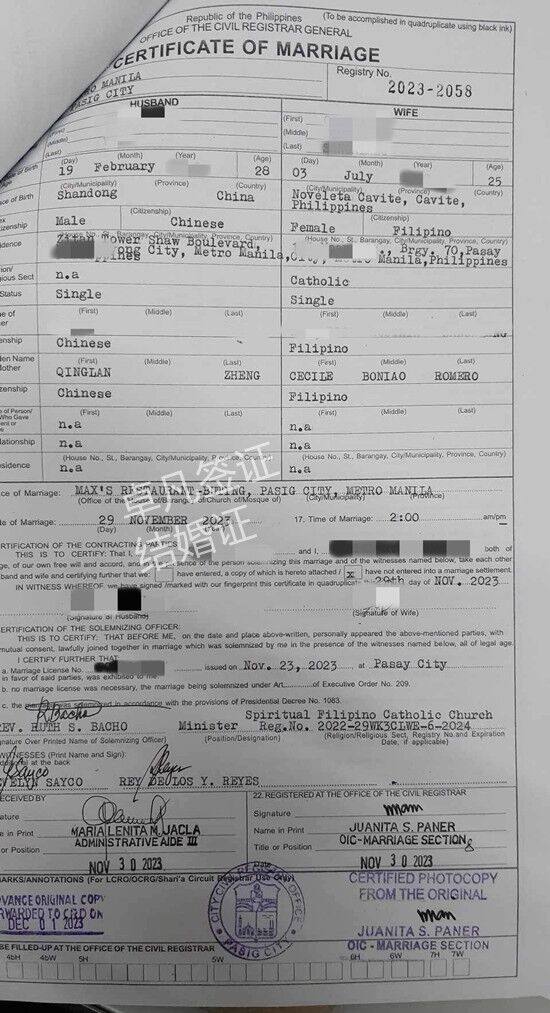 Republic of the Philippines
(To be accomplished in quadruplicate using black ink)
OFFICE OF THE CIVIL REGISTRAR GENERAL
CERTIFICATE OF MARRIAGE
MANILA
Registry No.
2023-2058
PASIG CITY
HUSBAND
WIFE
(First)
(First)
(Middle)
(Middle)
(Last)
(Last)
(Day) (Month) (Year) (Age)
(Day) (Month) (Year) (Age)
19 February 28
03 July 25
(City/Municipality) (Province) (Country)
(City/Municipality) (Province) (Country)
Shandong China
Noveleta Cavite, Cavite,
Philippines
(Citizenship)
(Citizenship)
Male Chinese
Female Filipino
(House No., St., Barangay, City/Municipality, Province, Country)
(House No., St., Barangay, City/Municipality, Province, Country)
Tower Shaw Boulevard,
Brgy. 70, Pasay
City, Metro Manila,
Manila, Philippines
n.a
Catholic
Status
Single
Single
(First) (Middle) (Last)
(First) (Middle) (Last)
Chinese
Filipino
(First) (Middle) (Last)
(First) (Middle) (Last)
QINGLAN ZHENG
CECILE BONIAO ROMERO
Chinese
Filipino
(First) (Middle) (Last)
(First) (Middle) (Last)
n.a
n.a
n.a
n.a
(House No., St., Barangay, City/Municipality, Province, Country)
(House No., St., Barangay, City/Municipality, Province, Country)
n.a
n.a
of Marriage: MAX'S RESTAURANT PASIG CITY, METRO MANILA
(Office of the House of Barangay of Church of Mosque of) (City/Municipality) (Province)
卓凡签证
结婚证
of Marriage: 29 NOVEMBER 2023
17. Time of Marriage: 2:00 am/pm
(Day) (Month)
CERTIFICATION OF THE CONTRACTING PARTIES
THIS IS TO CERTIFY: That I, and I, both of
age, of our own free will and accord, and in the presence of the person solemnizing this marriage and of the witnesses named below, take each other
band and wife and certifying further that we: have entered, a copy of which is hereto attached / x have not entered into a marriage settlement.
IN WITNESS WHEREOF, we have signed /marked with our fingerprint this certificate in quadruplicate 29th day of NOV. 2023
(Signature of Husband)
(Signature of Wife)
CERTIFICATION OF THE SOLEMNIZING OFFICER:
THIS IS TO CERTIFY: THAT BEFORE ME, on the date and place above-written, personally appeared the above-mentioned parties, with
mutual consent, lawfully joined together in marriage which was solemnized by me in the presence of the witnesses named below, all of legal age.
I CERTIFY FURTHER THAT:
a. Marriage License No. issued on Nov. 23, 2023 at Pasay City
in favor of said parties, was exhibited to me.
b. no marriage license was necessary, the marriage being solemnized under Art. of Executive Order No. 209.
c. the marriage was solemnized in accordance with the provisions of Presidential Decree No. 1083.
REV. RUTH S. BACHO
Minister
Spiritual Filipino Catholic Church
Reg.No. 2022-29WK3CLWE-6-2024
(Signature Over Printed Name of Solemnizing Officer)
(Position/Designation)
(Religion/Religious Sect, Registry No. and Expiration
Date, if applicable)
WITNESSES (Print Name and Sign):
Additional at the back
EVELYN SAYCO
REY DELOS Y. REYES
RECEIVED BY
22. REGISTERED AT THE OFFICE OF THE CIVIL REGISTRAR
Signature
Name in Print
MARIA LENITA M. JACLA
Name in Print JUANITA S. PANER
or Position
ADMINISTRATIVE AIDE III
Title or Position OIC-MARRIAGE SECTION
NOV 30 2023
Date
NOV 30 2023
REMARKS/ANNOTATIONS (For LCRO/OCRG/Shari'a Circuit Registrar Use Only)
CERTIFIED PHOTOCOPY
FROM THE ORIGINAL
ADVANCE ORIGINAL COPY
FORWARDED TO CRD ON
DEC 01 2023
PASIG CITY
JUANITA S. PANER
OIC - MARRIAGE SECTION
BE FILLED-UP AT THE OFFICE OF THE CIVIL REGISTRAR
4bH 4bW 5H 5W 6H 6W 7H 7W